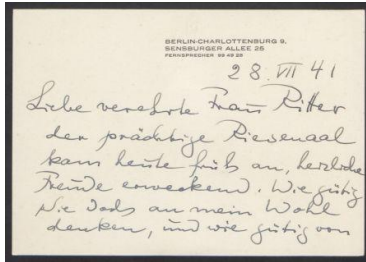 BERLIN-CHARLOTTENBURG 9,
SENSBURGER ALLEE 26
FERNSPRECHER 99 49 29
28. VII 41
Liebe verehrte Frau Ritter
der prächtige Riesenaal
kam heute früh an, herzliche
Freude erweckend. Wie gütig
Sie doch an mein Wohl
denken, und wie gütig von